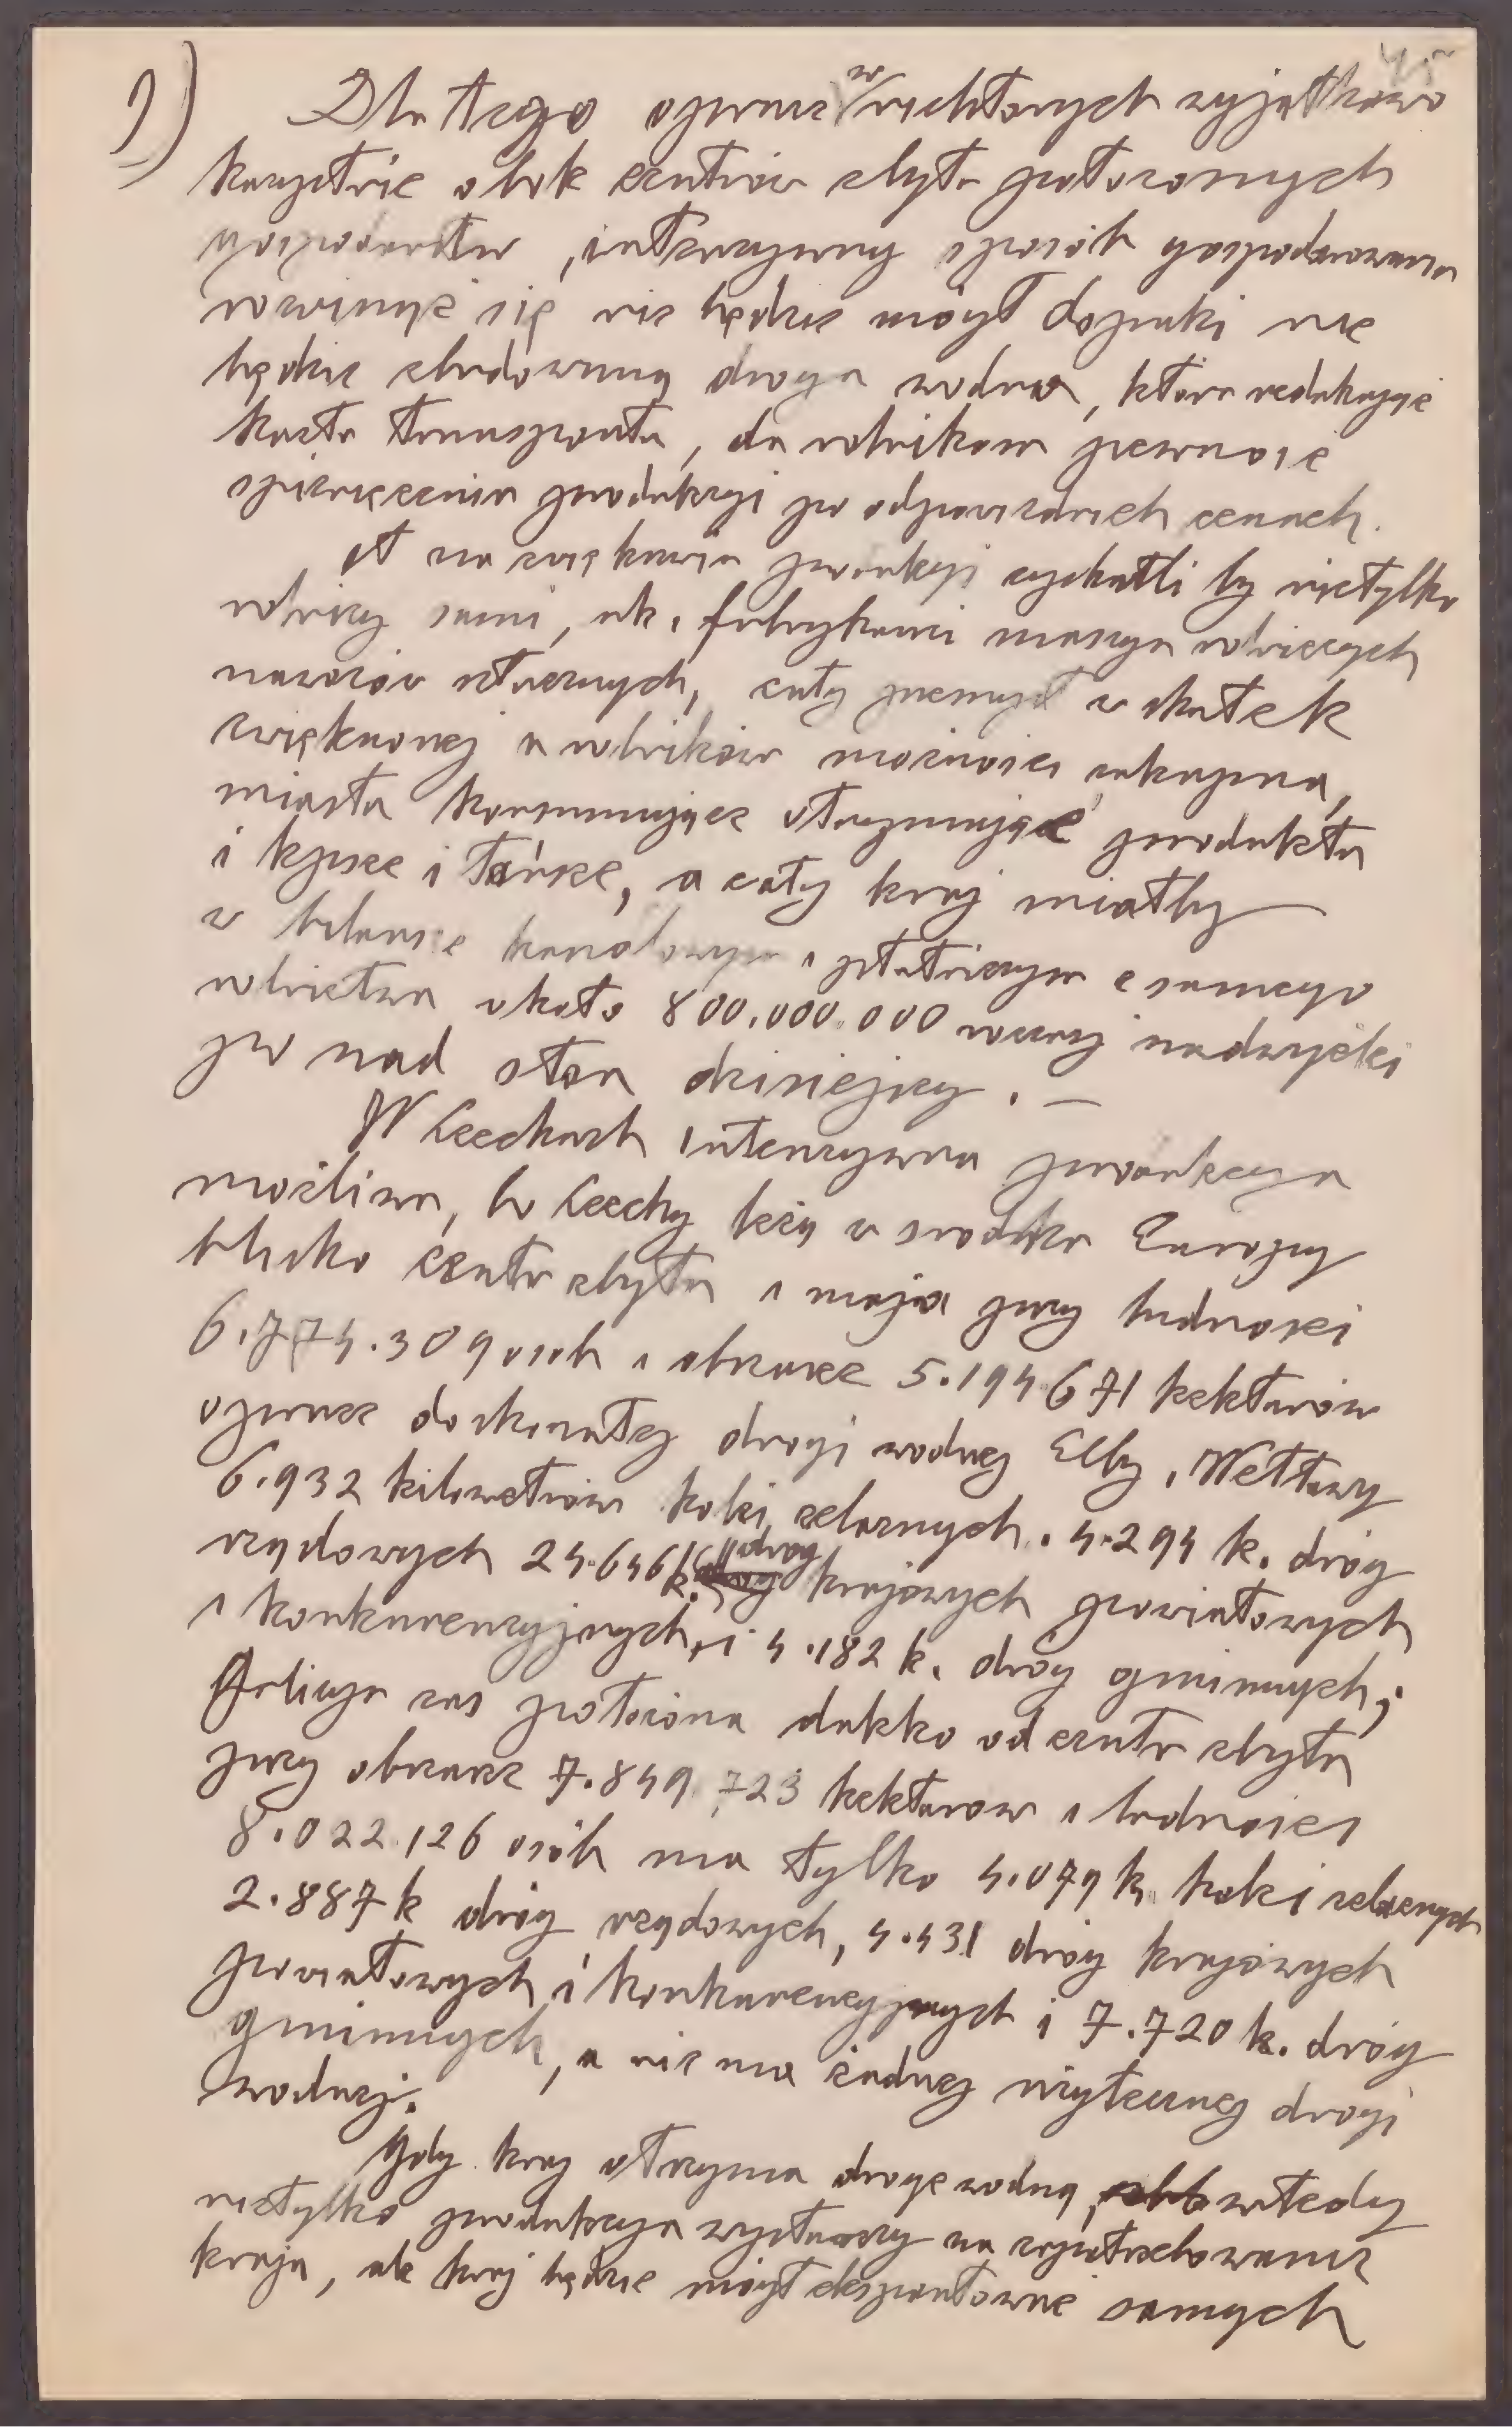 9)
Dla tego oprócz w niektórych wyjątkowo
korzystnie obok centrów zbytu położonych
gospodarstw, intenzywny sposób gospodarowania
rozwinąć się nie będzie mógł dopóki nie
będzie zbudowaną droga wodna, która redukując
koszta transportu, da rolnikom pewność
spieniężenia produkcyi po odpowiednich cenach.
A na zwiększeniu produkcyi zyskaliby nietylko
rolnicy sami, ale i fabrykanci maszyn rolniczych
nawozów sztucznych, cały przemysł w skutek
zwiększonej u rolników możności zakupna,
miasta konsumujące otrzymując produkta
i lepsze i tańsze, a cały kraj miałby
w bilansie handlowym i płatniczym z samego
rolnictwa około 800.000.000 rocznej nadwyżki
po nad stan dzisiejszy. —
W Czechach intenzywna produkcya
możliwa, bo Czechy leżą w środku Europy
blisko centr zbytu i mają przy ludności
6.774.309 osób i obszarze 5.194.671 hektarów
oprócz doskonałej drogi wodnej Elby i Wełtawy
6.932 kilometrów kolei żelaznych. 4.294 k. dróg
rządowych 24.646 k. dróg krajowych powiatowych
i konkurencyjnych, i 4.182 k. dróg gminnych;
Galicya zaś położona daleko od centr zbytu
przy obszarze 7.849.723 hektarow i ludności
8.022.126 osób ma tylko 4.079 k. kolei żelaznych
2.887 k dróg rządowych, 4.431 dróg krajowych
powiatowych i konkurencyjnych i 7.720 k. dróg
gminnych, a nie ma żadnej użytecznej drogi
wodnej.
Gdy kraj otrzyma drogę wodną, wtedy
nietylko produkcya wystarczy na zapotrzebowanie
kraju, ale kraj będzie mógł eksportować samych